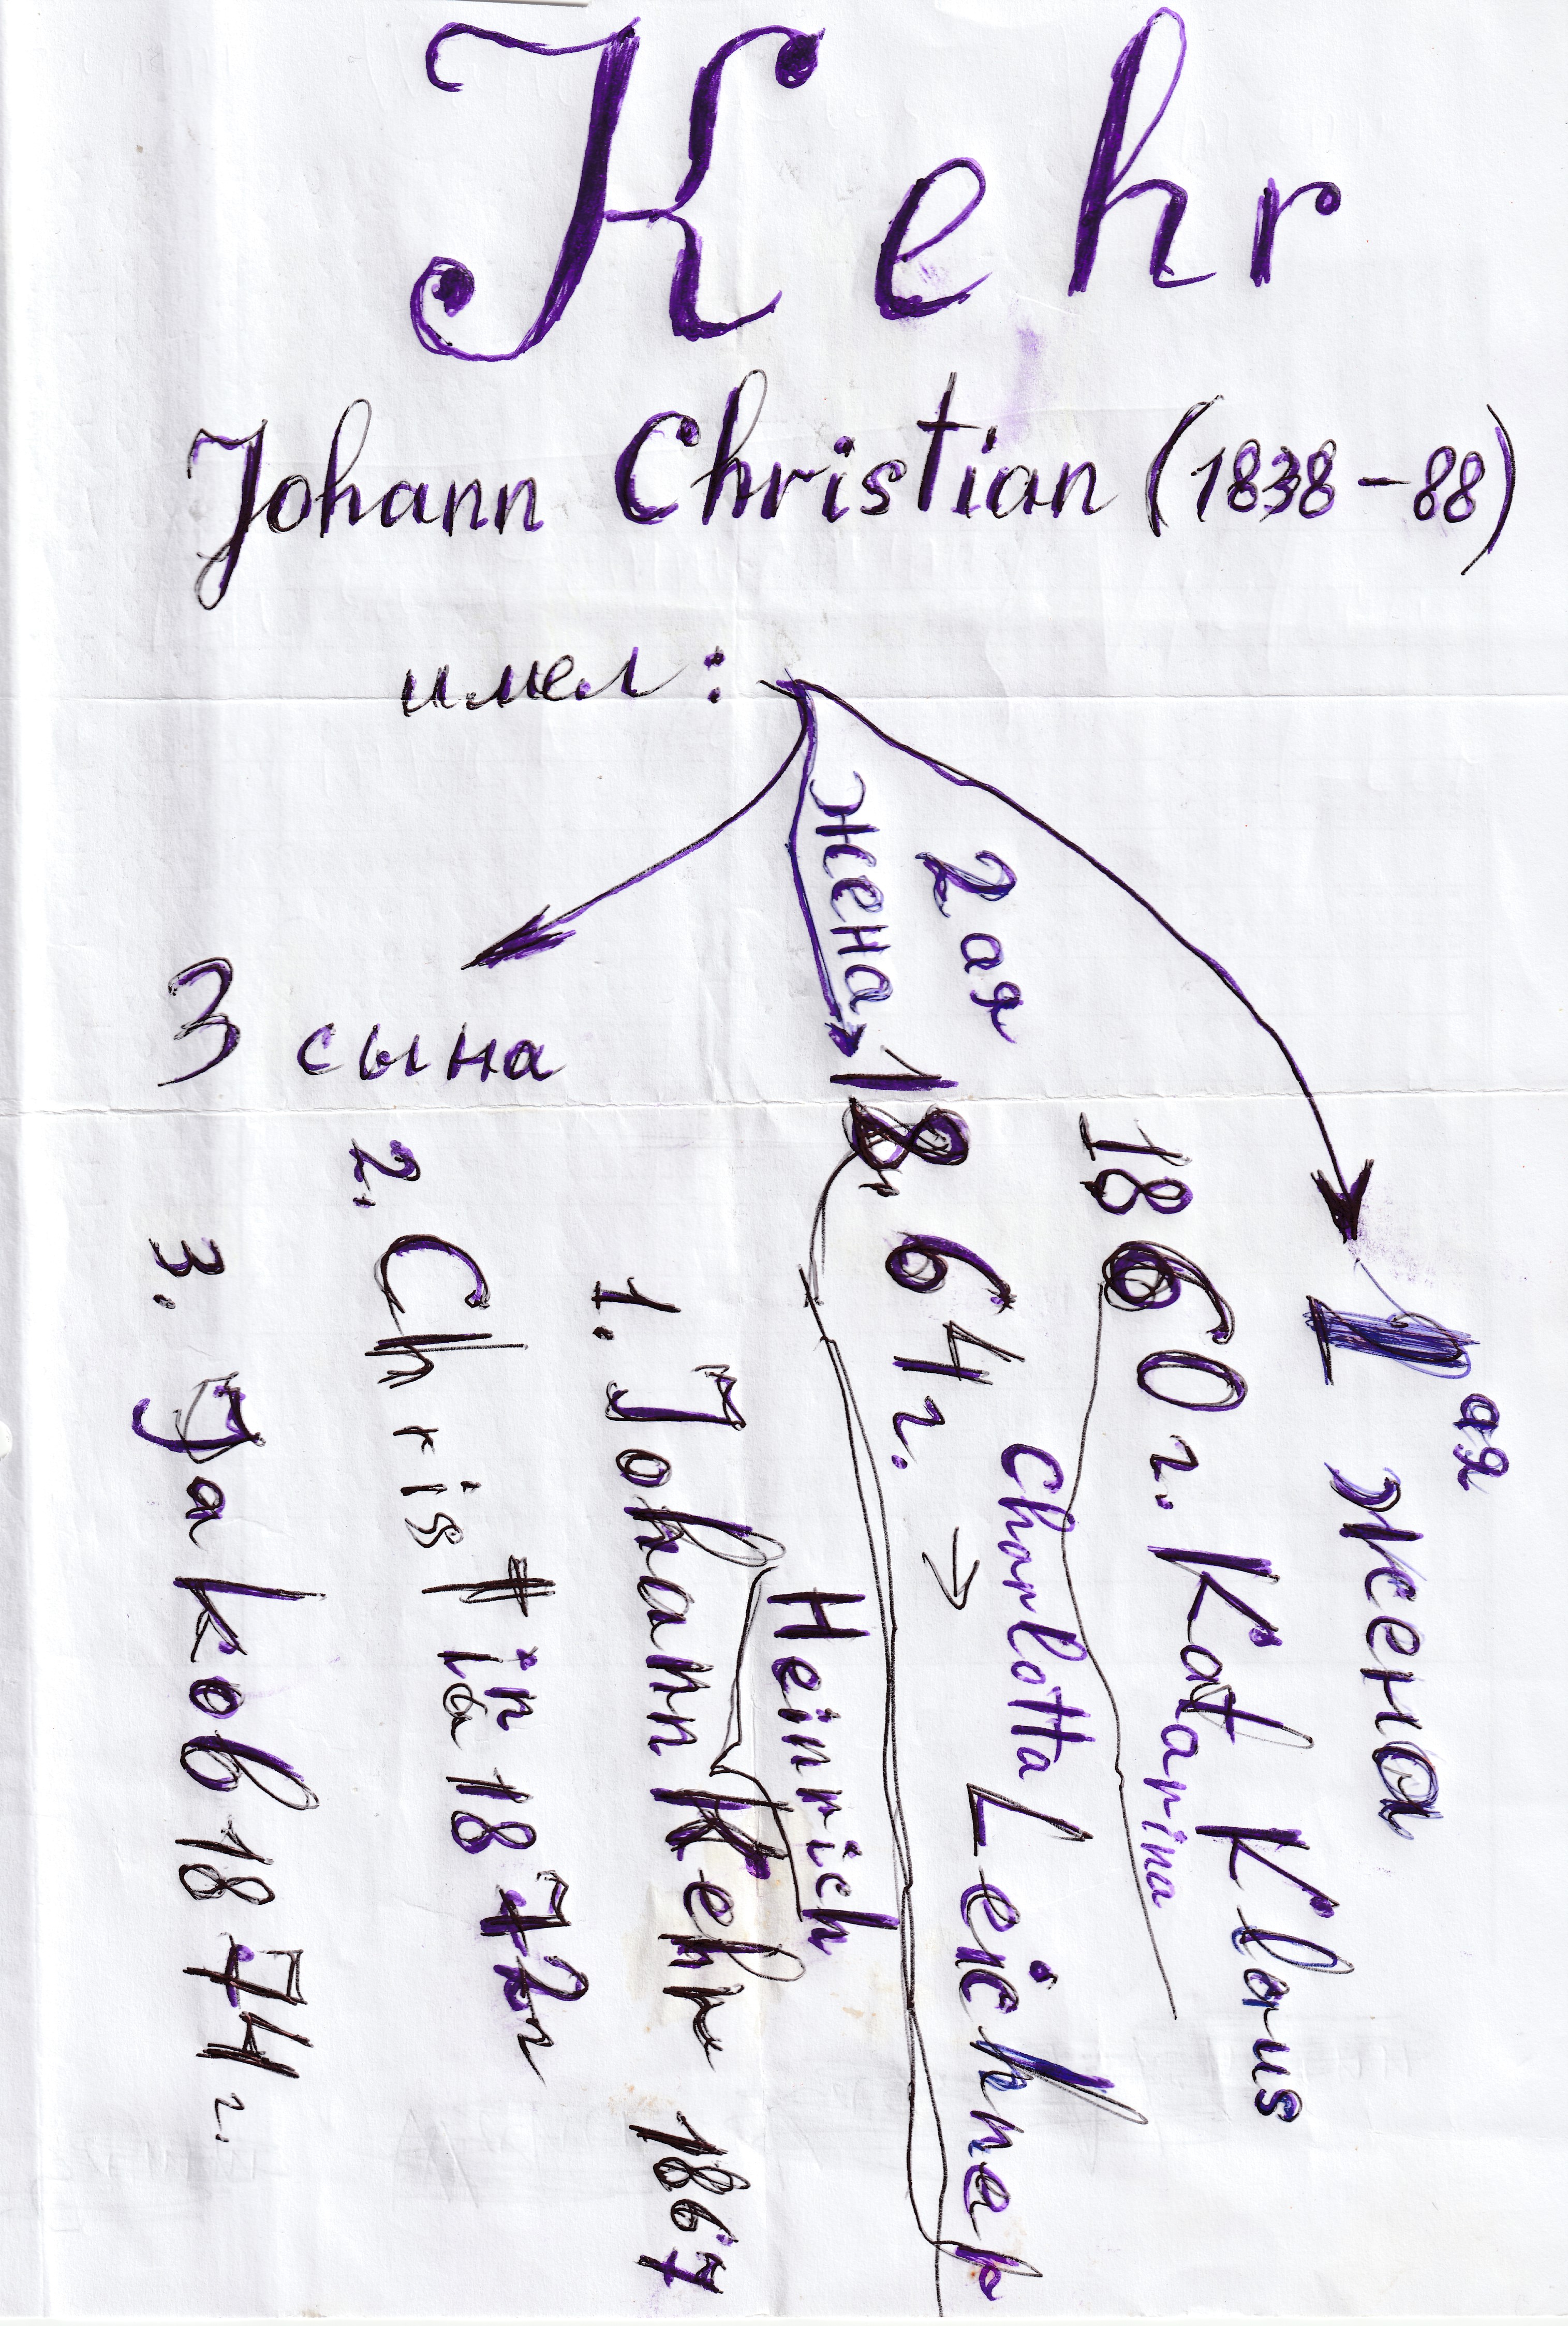 Kehr
Johann Christian (1838-88)
имел:
1 ая жена
1860 г. Katarina Klaus
2 ая
жена
1864 г.
Charlotta
3 сына
Heinrich
1. Johann Kehr 1867
2. Christian 1872г
3. Jakob 1874 г.